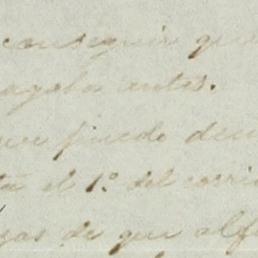 conseguir que
pagalos antes.
que puedo den
ta el 1º del corri
zas de que alf